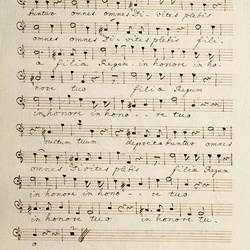 buntur omnes omnes Di-vites plebis
omnes omnes Di-vites plebis fili-
a filia Regum in honore in ho-
nore tuo filia Regum
in honore in hono--re tuo
vultum tuum depreca buntur omnes
omnes Divites plebis filia Regum
in honore in hono--re tuo
in honore tuo in honore tu-
o